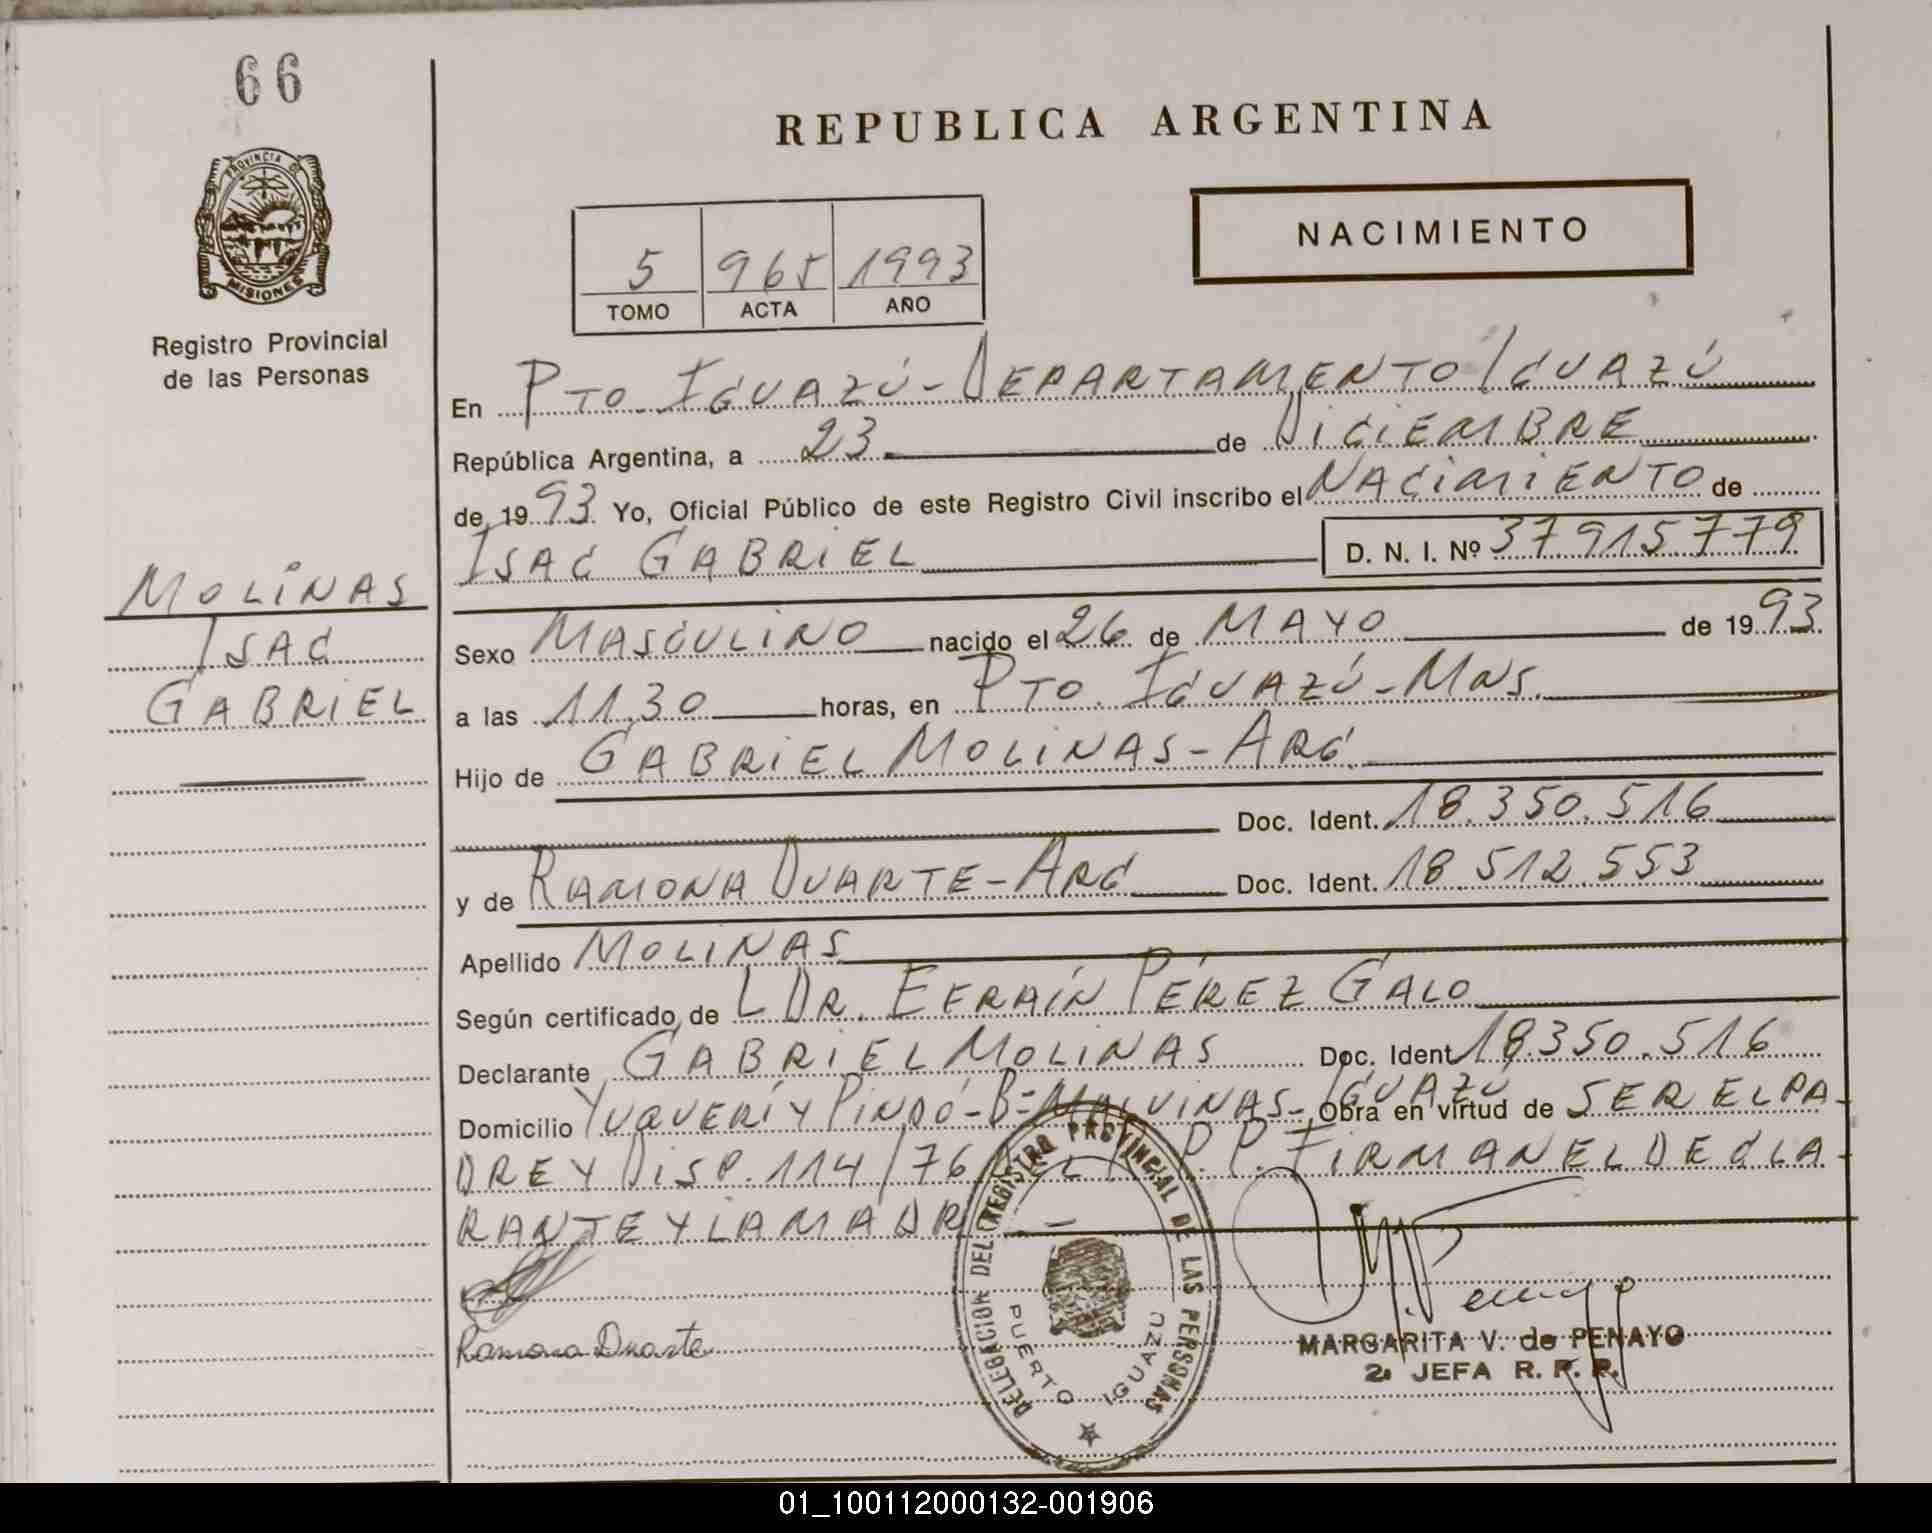 66
PROVINCIA DE
MISIONES
Registro Provincial
de las Personas
MOLINAS
ISAC
GABRIEL
REPUBLICA ARGENTINA
NACIMIENTO
5 965 1993
TOMO ACTA AÑO
En PTO. IGUAZÚ - DEPARTAMENTO IGUAZÚ
República Argentina, a 23 de DICIEMBRE
de 1993 Yo, Oficial Público de este Registro Civil inscribo el NACIMIENTO de
ISAC GABRIEL D. N. I. Nº 37.915.779
Sexo MASCULINO nacido el 26 de MAYO de 1993
a las 11.30 horas, en PTO. IGUAZÚ - MNS.
Hijo de GABRIEL MOLINAS - ARG.
Doc. Ident. 18.350.516
y de RAMONA DUARTE - ARG Doc. Ident. 18.512.553
Apellido MOLINAS
Según certificado de L DR. EFRAÍN PÉREZ GALO
Declarante GABRIEL MOLINAS Doc. Ident 18.350.516
Domicilio YUQUERÍ Y PINDÓ - Bº MALVINAS - IGUAZÚ Obra en virtud de SER EL PA-
DRE Y DISP. 114/76 R.P.P. FIRMAN EL DECLA-
RANTE Y LA MADR
Ramona Duarte
DELEGACION DEL REGISTRO PROVINCIAL DE LAS PERSONAS
PUERTO IGUAZU
MARGARITA V. de PENAYO
2a JEFA R. P. P.
01_100112000132-001906